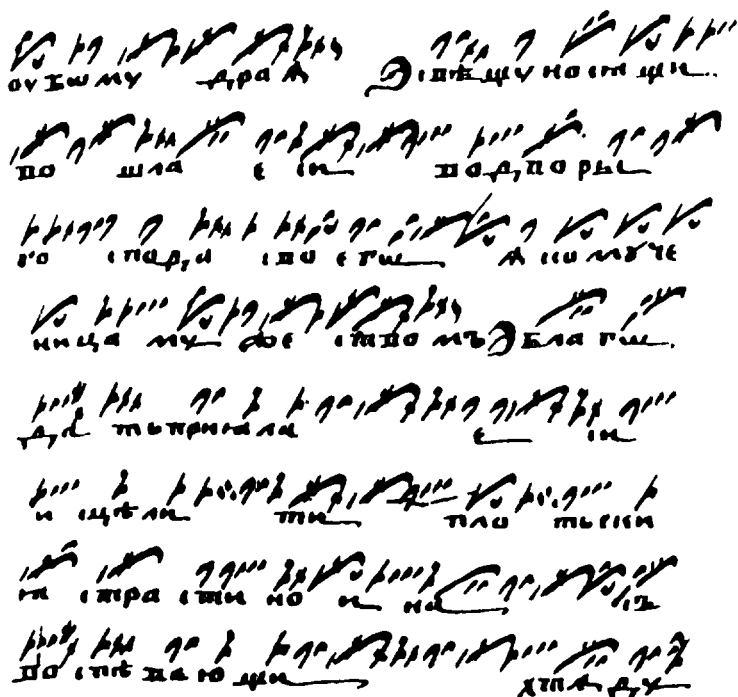 оу бѡ му драѧ спѣщу но стащи
по шла е си под по ры
го спода сво е гѡ ѧ ко мꙋ че
ница му же ство мъ бла гѡ
да ть приѧла е си
и сцѣли ти пло тьски
ꙗ стра сти но и на съ
по спѣ ваю щи